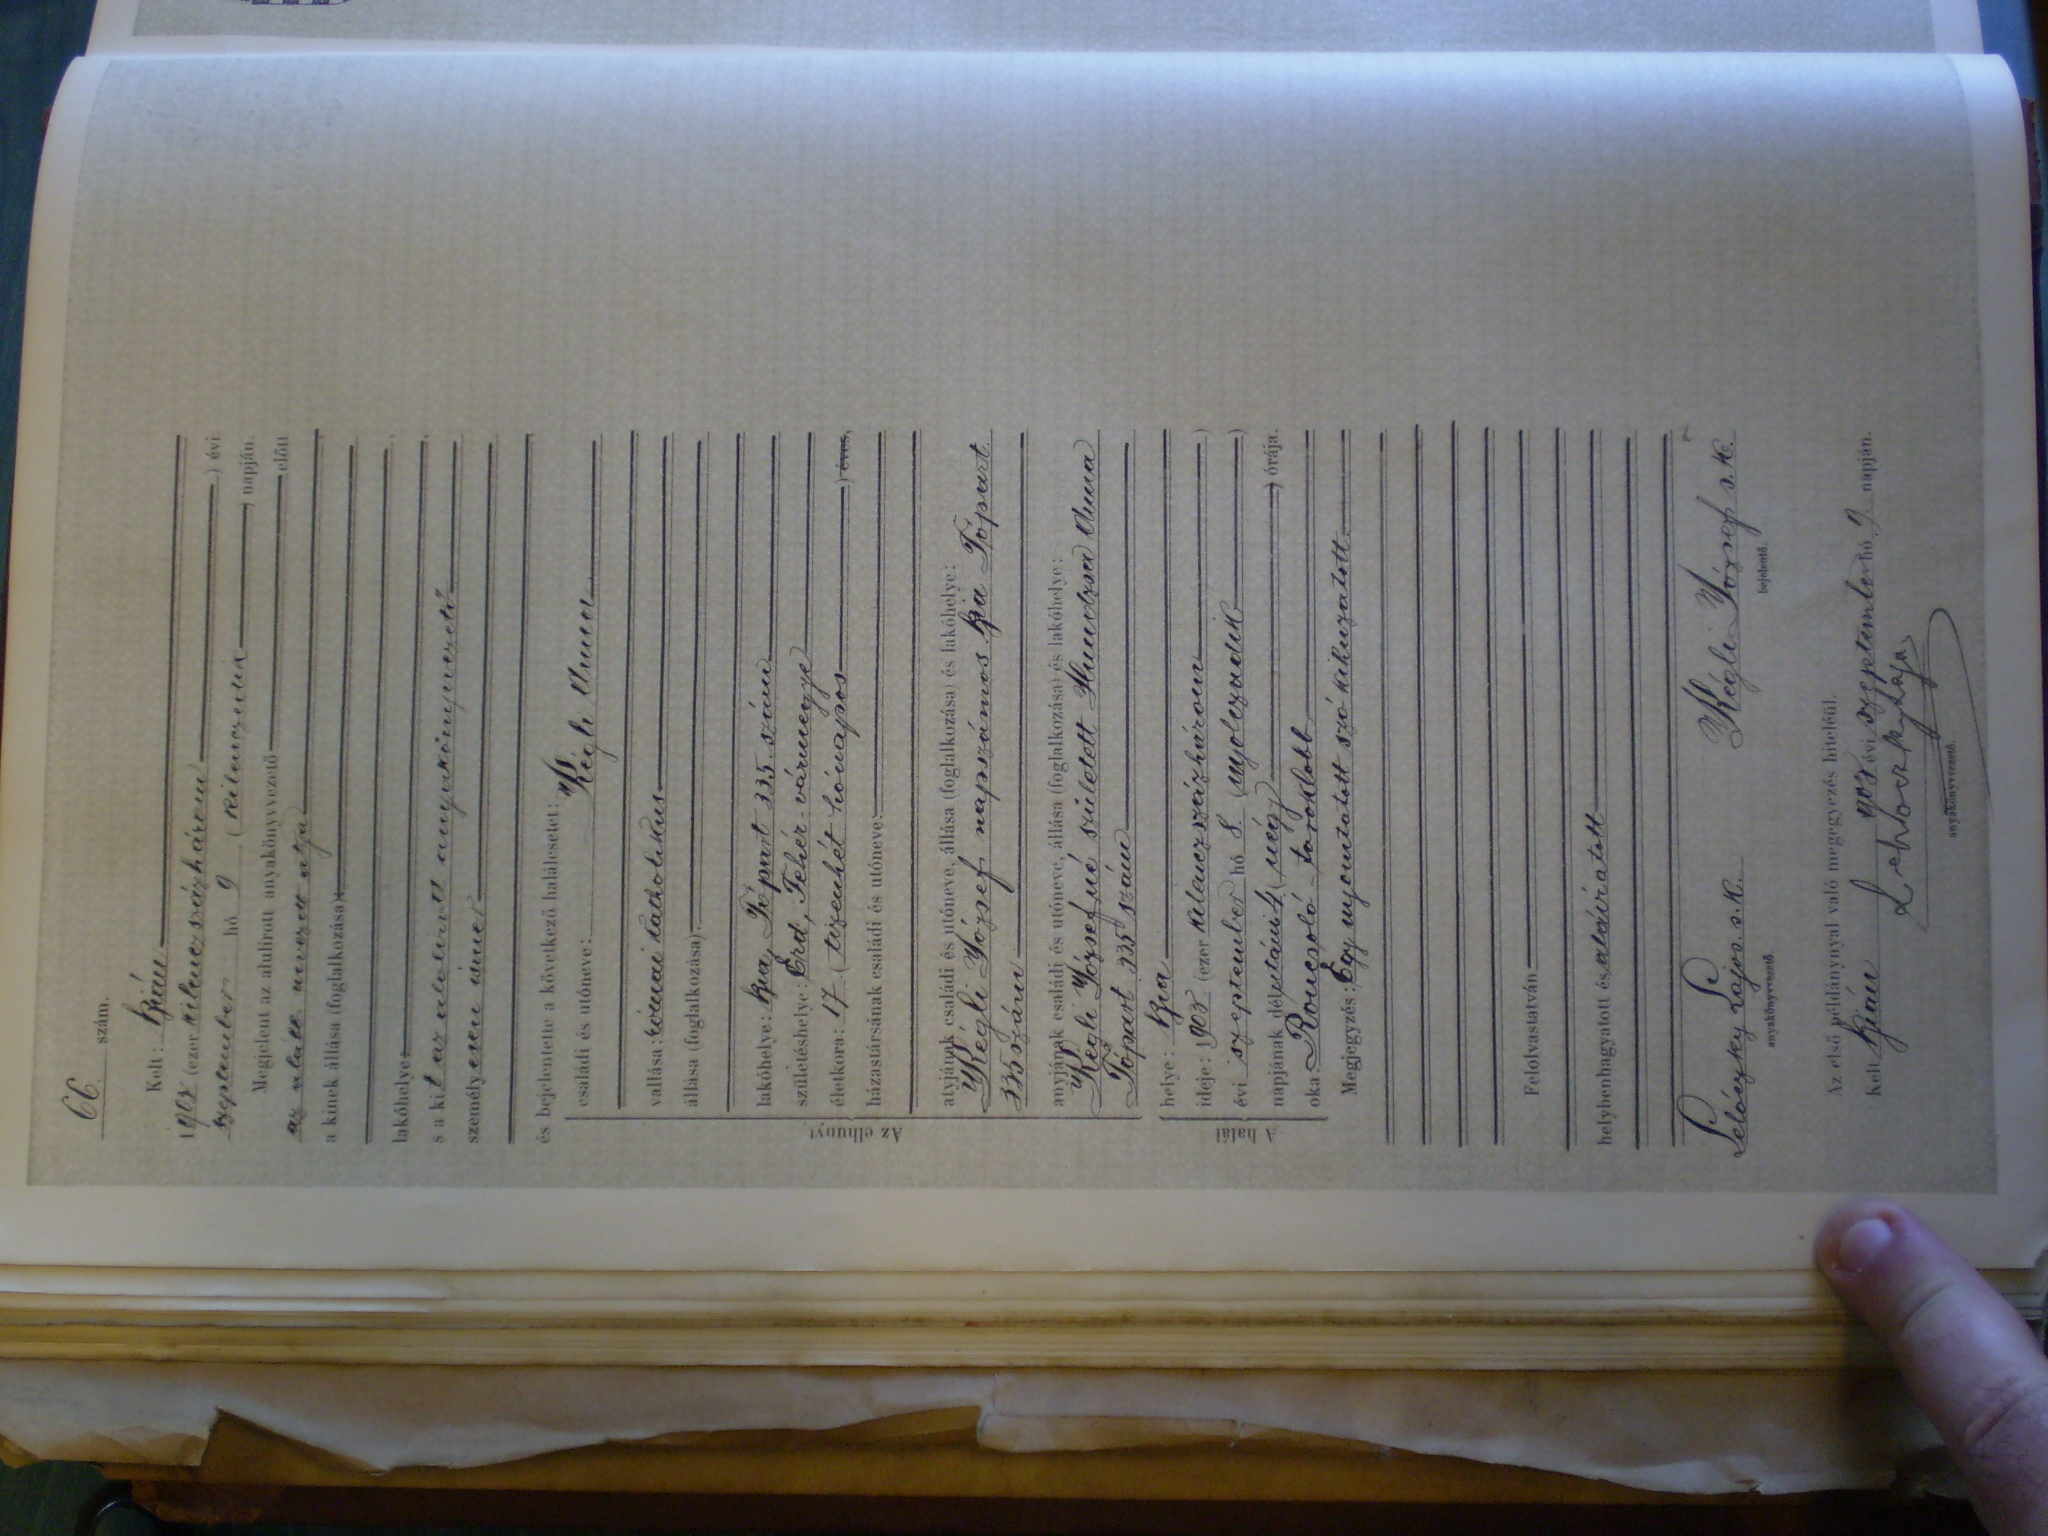 66. szám.
Kelt: Bián
1903 (ezer kilencszázhárom) évi
szeptember hó 9 (kilencedik) napján.
Megjelent az alulirott anyakönyvvezető előtt
az alább nevezett atyja
a kinek állása (foglalkozása):
lakóhelye:
s a kit az alulirott anyakönyvvezető
személyesen ismer
és bejelentette a következő halálesetet:
Az elhunyt
családi és utóneve: Régli Anna
vallása: római katholikus
állása (foglalkozása):
lakóhelye: Bia, Tópart 335. szám
születéshelye: Érd, Fehér-vármegye
életkora: 17 (tizenhét hónapos) éves,
házastársának családi és utóneve:
atyjának családi és utóneve, állása (foglalkozása) és lakóhelye:
Régli József napszámos Bia Tópart
335 szám
anyjának családi és utóneve, állása (foglalkozása) és lakóhelye:
Régli Józsefné született Anna
Tópart 335 szám
A halál
helye: Bia
ideje: 1903 (ezer kilenczszázhárom)
évi szeptember hó 8. (nyolczadik)
napjának délutáni 4 (négy) órája.
oka: Roncsoló toroklob
Megjegyzés: Egy nyomtatott szó kihuzatott
Felolvastatván
helybenhagyatott és aláíratott
Lajos s.k. Régli József s.k.
anyakönyvvezető. bejelentő.
Az első példánynyal való megegyezés hiteléül.
Kelt Bián 903 évi szeptember hó 9 napján.
anyakönyvvezető.